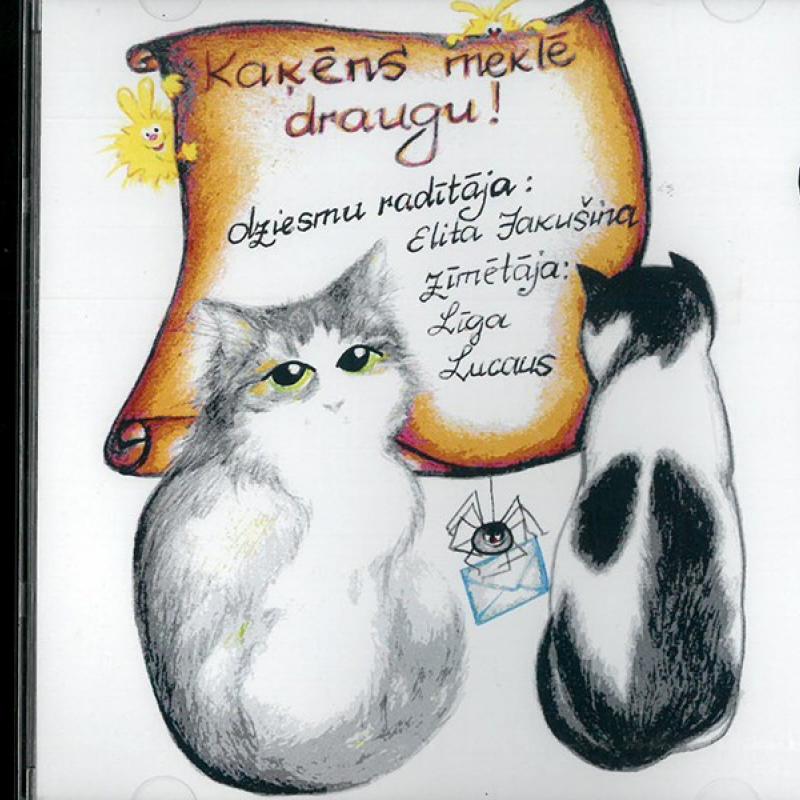 Kaķēns meklē
draugu!
dziesmu radītāja:
Elita Jakušina
zīmētāja:
Līga
Lucaus